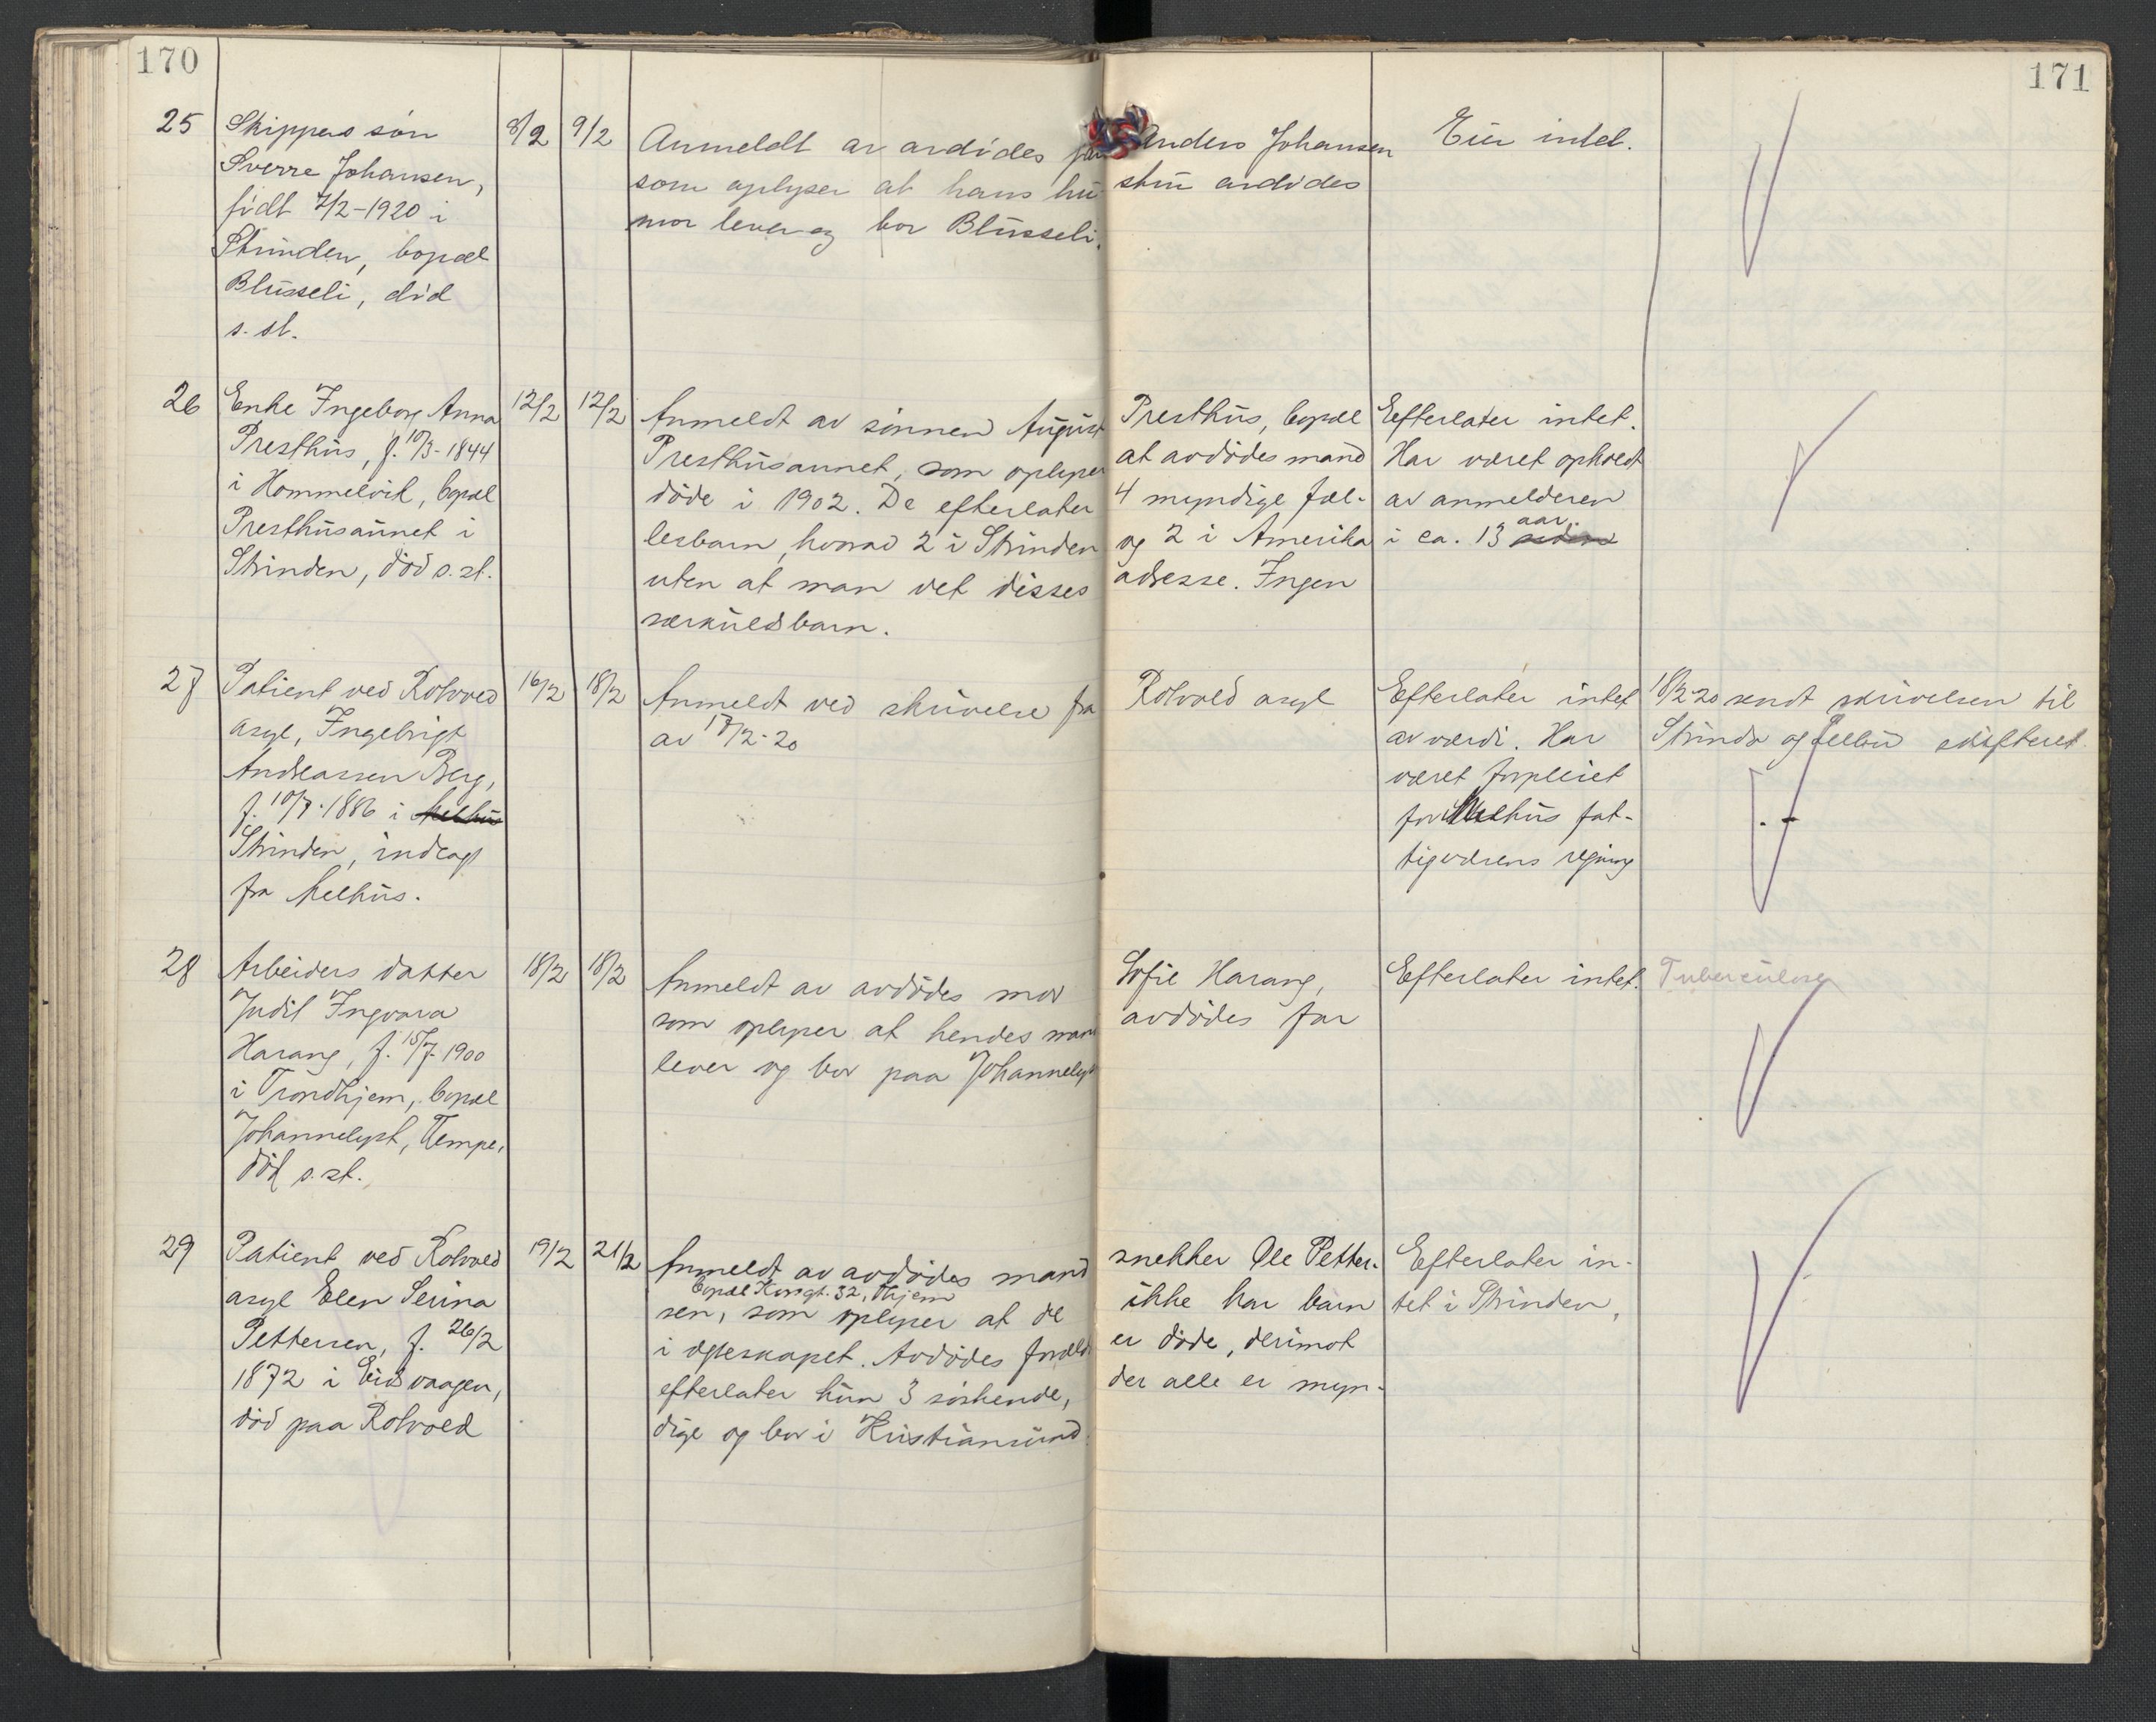 170
171
25 Skippers søn 8/2 9/2 Anmeldt av avdødes far Anders Johansen Eier intet.
Sverre Johansen, som oplyser at hans hu- stru avdødes
født 7/2-1920 i mor lever og bor Blusseli.
Strinden, bopæl
Blusseli, død
s. st.
26 Enke Ingeborg Anna 12/2 12/2 Anmeldt av sønnen August Presthus, bopæl Efterlater intet.
Presthus, f. 10/3-1844 Presthusaunet, som oplyser at avdødes mand Har været opholdt
i Hommelvik, bopæl døde i 1902. De efterlater 4 myndige fæl- av anmelderen
Presthusaunet i lesbarn, hvorav 2 i Strinden og 2 i Amerika i ca. 13 aar.
Strinden, død s. st. uten at man vet disses adresse. Ingen
særkuldsbarn.
27 Patient ved Rotvold 16/2 18/2 Anmeldt ved skrivelse fra Rotvold asyl Efterlater intet 18/2 20 sendt skrivelsen til
asyl, Ingebrigt av 17/2-20 av værdi. Har Strinda og Selbu skifteret.
Andreassen Berg, været forpleiet
f. 10/7-1886 i Melhus for Melhus fat-
Strinden, indlagt tigvæsens regning
fra Melhus.
28 Arbeiders datter 18/2 18/2 Anmeldt av avdødes mor Sofie Harang, Efterlater intet. Tuberculose
Judit Ingvara som oplyser at hendes mand avdødes far
Harang, f. 15/7-1900 lever og bor paa Johannelyst
i Trondhjem, bopæl
Johannelyst, Tempe,
død s. st.
29 Patient ved Rotvold 19/2 21/2 Anmeldt av avdødes mand snekker Ole Petter- Efterlater in-
bopæl Kongt. 32, Thjem
asyl Elen Serina sen, som oplyser at de ikke har barn tet i Strinden,
Pettersen, f. 26/2 i egteskapet. Avdødes foreldre er døde, derimot
1872 i Eidsvaagen, efterlater hun 3 søskende, der alle er myn-
død paa Rotvold dige og bor i Kristiansund.